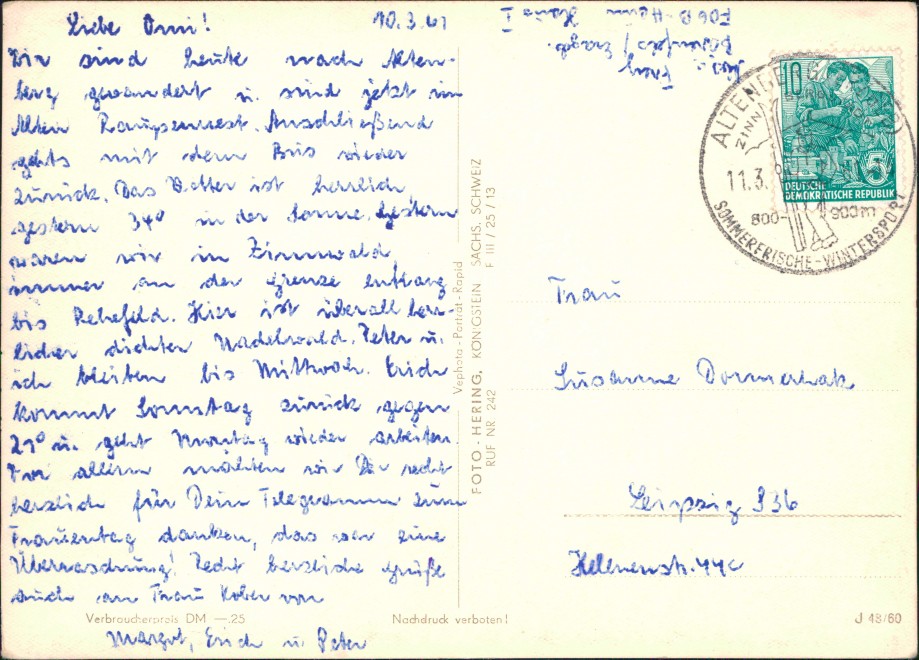 Liebe Omi! 10.3.61
Wir sind heute nach Alten-
berg gewandert u. sind jetzt im
Alten Raupennest. Anschließend
gehts mit dem Bus wieder
zurück. Das Wetter ist herrlich,
gestern 34° in der Sonne. Gestern
waren wir in Zinnwald
immer an der Grenze entlang
bis Rehefeld. Hier ist überall herr-
licher dichter Nadelwald. Peter u.
ich bleiben bis Mittwoch. Erich
kommt Sonntag zurück gegen
21° u. geht Montag wieder arbeiten.
Vor allem möchten wir Dir recht
herzlich für Dein Telegramm zum
Frauentag danken, das war eine
Überraschung! Recht herzliche Grüße
auch an Frau Kober von
Margot, Erich u. Peter
Verbraucherpreis DM —.25
Nachdruck verboten!
J 48/60
Vephota - Porträt - Rapid
FOTO - HERING, KÖNIGSTEIN SÄCHS. SCHWEIZ
RUF NR 242 F III / 25 / 13
Bärenfels / Erzgb.
FDGB-Heim Haus I
ALTENBERG
ZINN
11.3.
800- 900m
SOMMERFRISCHE - WINTERSPORT
10
5
DEUTSCHE
DEMOKRATISCHE REPUBLIK
Frau
Susanne
Leipzig S36
Hellnerstr. 44c